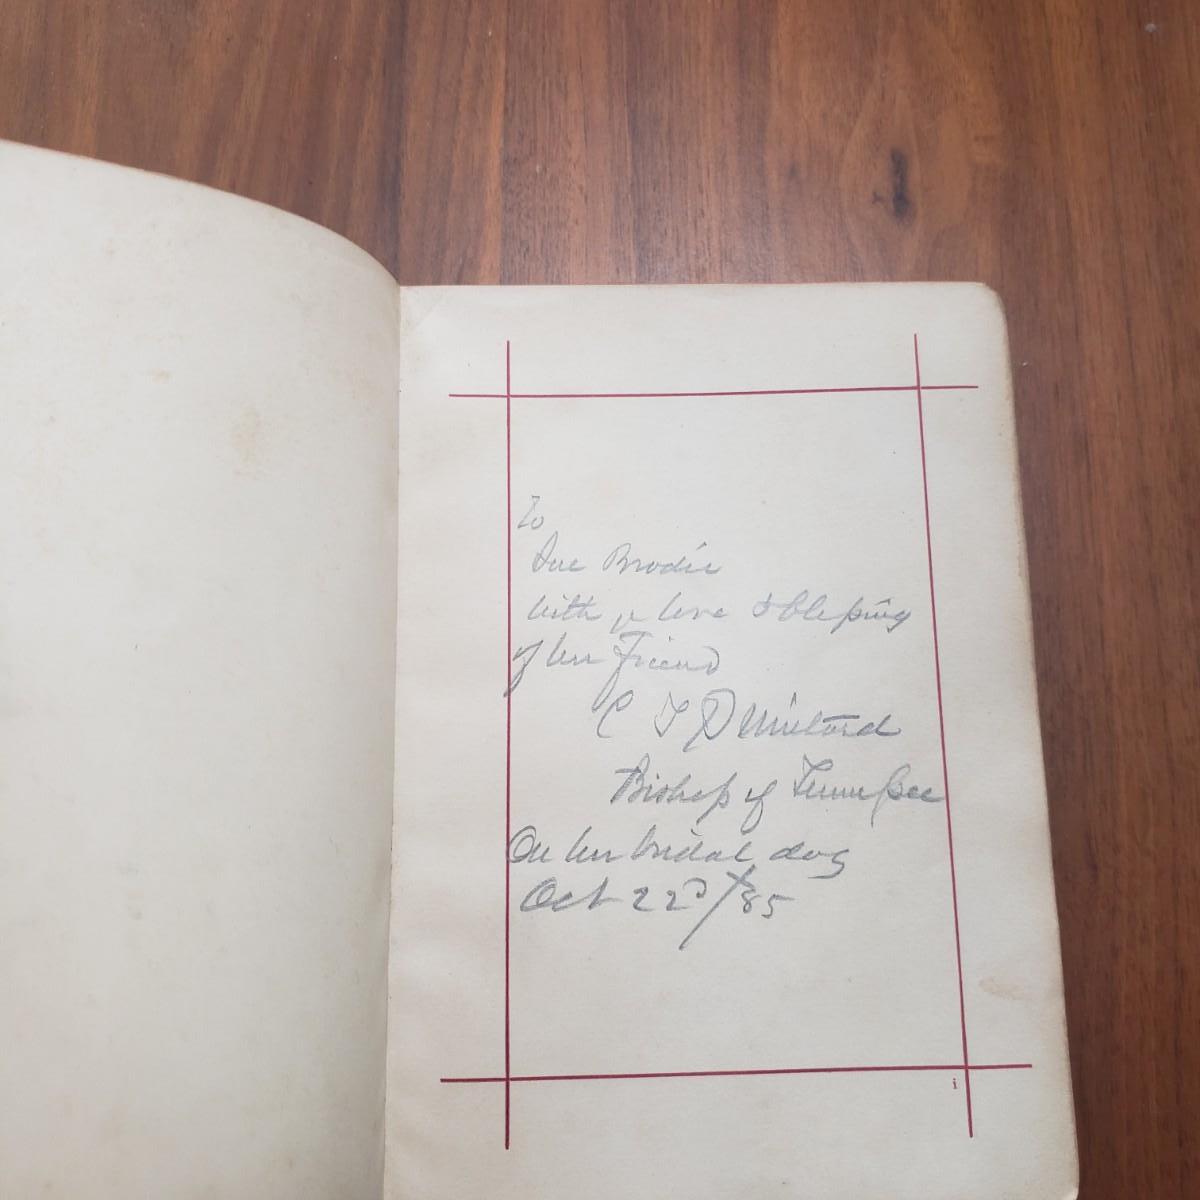 To
Sue Brodie
with ye love & blessing
of her Friend
C T Quintard
Bishop of Tennessee
On her bridal day
Oct 22D/85
i